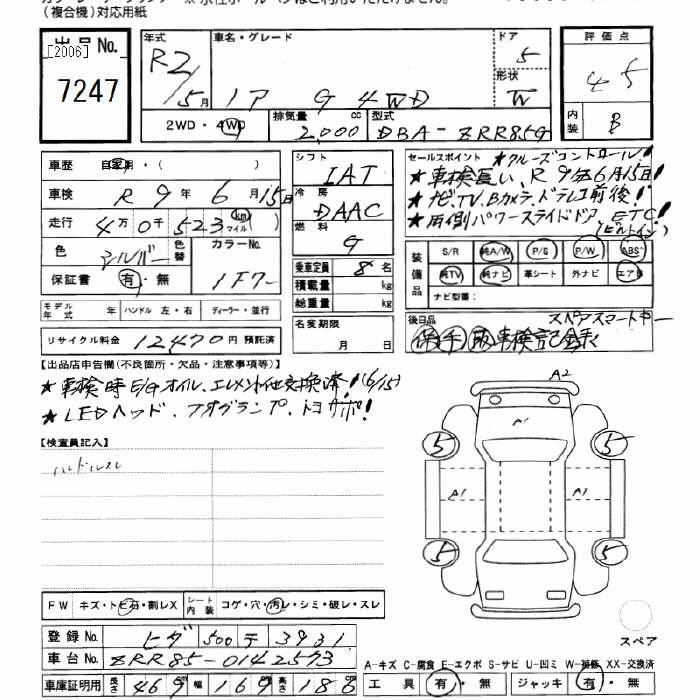 (複合機)対応用紙
出品No.
[2006]
7247
年式 R2/5月
車名・グレード ノア G 4WD
ドア 5
形状 W
評価点 4.5
内装 B
2WD・4WD
排気量 2,000 cc
型式 DBA-ZRR85G
車歴 自家用・( )
車検 R 9年 6月15日
走行 4万0千523 km マイル
色 シルバー
色替
カラーNo. 1F7
保証書 有・無
シフト IAT
冷房 DAAC
燃料 G
乗車定員 8名
積載量 kg
総重量 kg
名変期限 月 日
セールスポイント ★クルーズコントロール!
★車検長い、R9年6月15日!
★ナビ、TV、Bカメラ、ドラレコ前後!
★両側パワースライドドア、ETC!
(ビルトイン)
装備品
S/R 純A/W P/S P/W ABS
純TV 純ナビ 革シート 外ナビ エアB
ナビ型番:
モデル年式 年 ハンドル 左・右 ディーラー・並行
リサイクル料金 12470円 預託済
後日品 スペアスマートキー
保 手 取 車検記録
【出品店申告欄(不良箇所・欠品・注意事項等)】
★車検時E/Gオイル、エレメント他交換済!(6/15)
★LEDヘッド、フォグランプ、トヨサポ!
【検査員記入】
ハンドルスレ
A2
A1
5 5
A1 A1
5 5
スペア
FW キズ・トビ石・割レX
シート内装 コゲ・穴・汚レ・シミ・破レ・スレ
登録No. ヒダ 500 テ 3931
車台No. ZRR85-0142573
車庫証明用 長さ 469 幅 169 高さ 186
A-キズ C-腐食 E-エクボ S-サビ U-凹ミ W-補修 XX-交換済
工具 有・無 ジャッキ 有・無